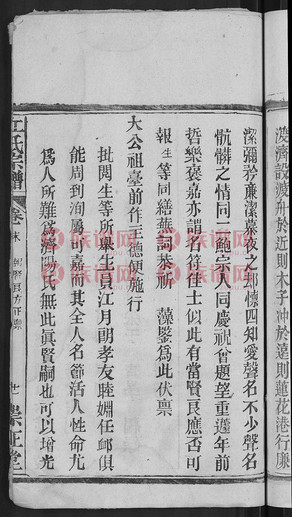 濟設渡舟於近則木子冲於遠則蓮花港行廉
潔彌矜廉潔暮夜之郤懍四知愛聲名不少聲名
骯髒之情同一飽宗人同慶祝會題望重邁年前
哲樂褒嘉亦謂名符佳士似此有當賢良應否可
報生等同繕無詞恭祈　藻鑒爲此伏稟
大公祖臺前作主德便施行
批閱生等所舉生員江月朗孝友睦婣任卹俱
能周到洵屬可嘉而其全人名節活人性命尤
爲人所難爲濟陽氏無此眞賢嗣也可以增光
江氏宗譜
卷末
十一
崇正堂
族譜网